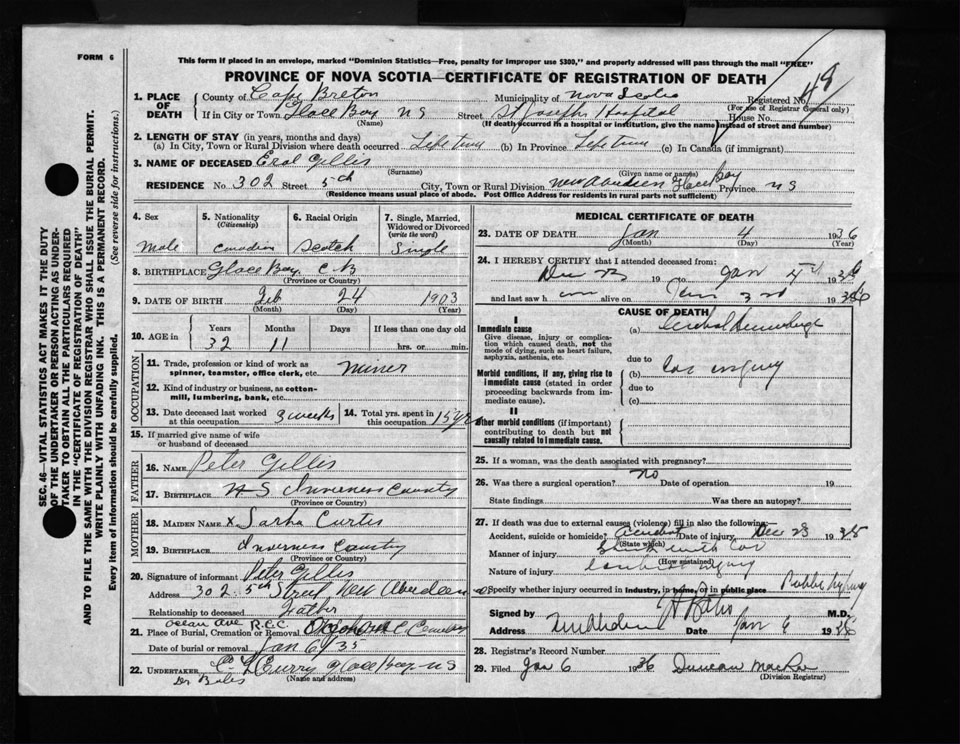 FORM 6
This form if placed in an envelope, marked "Dominion Statistics—Free, penalty for improper use $300," and properly addressed will pass through the mail "FREE"
PROVINCE OF NOVA SCOTIA—CERTIFICATE OF REGISTRATION OF DEATH
48
1. PLACE OF DEATH
County of Cape Breton Municipality of Nova Scotia Registered No.
(For use of Registrar General only)
If in City or Town Glace Bay NS Street St Josephs Hospital House No.
(Name) (If death occurred in a hospital or institution, give the name instead of street and number)
2. LENGTH OF STAY (in years, months and days)
(a) In City, Town or Rural Division where death occurred Life time (b) In Province Life Time (c) In Canada (if immigrant)
3. NAME OF DECEASED Gillis
(Surname) (Given name or names)
RESIDENCE No 302 Street 5th City, Town or Rural Division New Aberdeen Glace Bay Province NS
(Residence means usual place of abode. Post Office Address for residents in rural parts not sufficient)
4. Sex
Male
5. Nationality
(Citizenship)
Canadian
6. Racial Origin
Scotch
7. Single, Married, Widowed or Divorced
(write the word)
Single
8. BIRTHPLACE Glace Bay C B
(Province or Country)
9. DATE OF BIRTH Feb 24 1903
(Month) (Day) (Year)
10. AGE in Years Months Days If less than one day old
32 11 hrs. or min.
OCCUPATION
11. Trade, profession or kind of work as spinner, teamster, office clerk, etc. miner
12. Kind of industry or business, as cotton-mill, lumbering, bank, etc.
13. Date deceased last worked at this occupation 3 weeks
14. Total yrs. spent in this occupation 15 yrs
15. If married give name of wife or husband of deceased
FATHER
16. NAME Peter Gillis
17. BIRTHPLACE N S Inverness County
(Province or Country)
MOTHER
18. MAIDEN NAME X Sarha Curtis
19. BIRTHPLACE Inverness Country
(Province or Country)
20. Signature of informant Peter Gillis
Address 302 5th Street New Aberdeen
Relationship to deceased Father
Ocean Ave R.C.C.
21. Place of Burial, Cremation or Removal
Date of burial or removal Jan 6 35
22. UNDERTAKER Curry Glace Bay NS
(Name and address)
Dr Bates
MEDICAL CERTIFICATE OF DEATH
23. DATE OF DEATH Jan 4 1936
(Month) (Day) (Year)
24. I HEREBY CERTIFY that I attended deceased from:
19 to Jan 4th 1936
and last saw h im alive on Jan 3rd 1936
CAUSE OF DEATH
I
Immediate cause
Give disease, injury or complication which caused death, not the mode of dying, such as heart failure, asphyxia, asthenia, etc.
(a)
due to
Morbid conditions, if any, giving rise to immediate cause (stated in order proceeding backwards from immediate cause).
(b) car injury
due to
(c)
II
Other morbid conditions (if important) contributing to death but not causally related to immediate cause.
25. If a woman, was the death associated with pregnancy?
26. Was there a surgical operation? no Date of operation 19
State findings Was there an autopsy?
27. If death was due to external causes (violence) fill in also the following:
Accident, suicide or homicide? Accident Date of injury Dec 23 1935
(State which)
Manner of injury Struck with car
(How sustained)
Nature of injury injury
Specify whether injury occurred in industry, in home, or in public place Public
Signed by M.D.
Address Date Jan 6 19
28. Registrar's Record Number
29. Filed Jan 6 1936 Duncan MacRae
(Division Registrar)
SEC. 46—VITAL STATISTICS ACT MAKES IT THE DUTY
OF THE UNDERTAKER OR PERSON ACTING AS UNDER-
TAKER TO OBTAIN ALL THE PARTICULARS REQUIRED
IN THE "CERTIFICATE OF REGISTRATION OF DEATH"
AND TO FILE THE SAME WITH THE DIVISION REGISTRAR WHO SHALL ISSUE THE BURIAL PERMIT.
WRITE PLAINLY WITH UNFADING INK. THIS IS A PERMANENT RECORD.
Every item of Information should be carefully supplied. (See reverse side for instructions.)